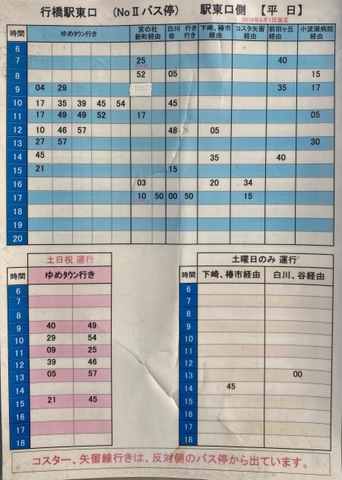 行橋駅東口 (NoⅡバス停) 駅東口側 【平 日】
2018年6月1日改正
時間 ゆめタウン行き 宮の杜 新町経由 白川 行き 谷 行き 下崎、椿市 経由 コスタ矢留 経由 前田ヶ丘 経由 小波瀬病院 経由
6
7 25 40
8 52 05 15
9 04 29 35 17
10 17 35 39 45 54 45
11 17 49 49 52 17 05
12 10 46 57 48 05
13 27 57 30
14 45 35 40
15 21 15
16 03 20 34
17 10 50 00 50 15
18
19
20
土日祝 運行
時間 ゆめタウン行き
6
7
8
9 40 49
10 29 54
11 09 25
12 39 46
13 05 57
14
15 21 45
16
17
18
土曜日のみ 運行
時間 下崎、椿市経由 白川、谷経由
6
7
8
9
10
11
12
13 00
14 45
15
16
17
18
コスター、矢留線行きは、反対側のバス停から出ています。